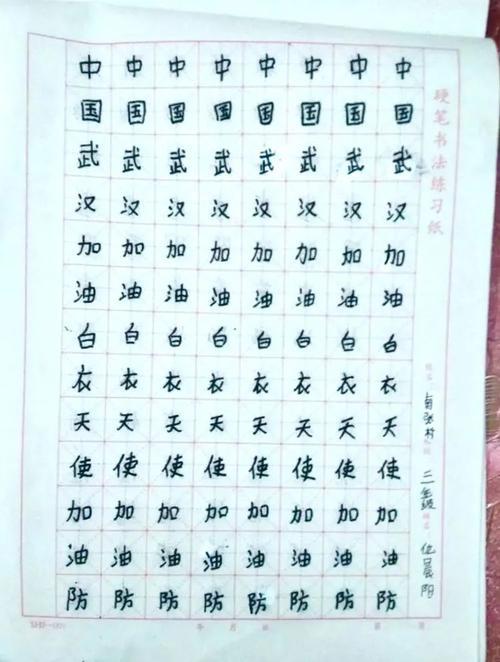 中中中中中中中中
国国国国国国国国
武武武武武武武武
汉汉汉汉汉汉汉汉
加加加加加加加加
油油油油油油油油
白白白白白白白白
衣衣衣衣衣衣衣衣
天天天天天天天天
使使使使使使使使
加加加加加加加加
油油油油油油油油
防防防防防防防防
硬笔书法练习纸
三年级
晨阳
年 月